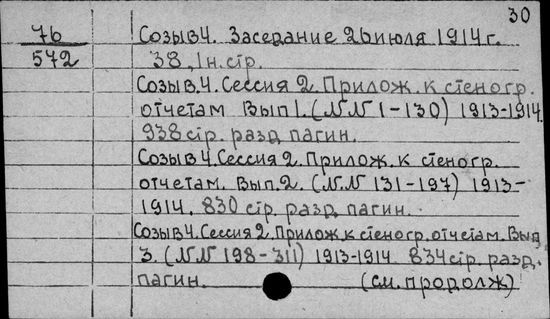 30
76
572
Созыв 4. Заседание 26 июля 1914 г.
38, 1н. стр.
Созыв 4. Сессия 2. Прилож. к стеногр.
отчетам Вып 1. (NN 1-130) 1913-1914.
938 стр. разд. пагин.
Созыв 4. Сессия 2. Прилож. к стеногр.
отчетам. Вып. 2. (N.N 131-197) 1913-
1914. 830 стр. разд. пагин.
Созыв 4. Сессия 2. Прилож. к стеногр. отчетам. Вып
3. (NN 198-311) 1913-1914. 834 стр. разд.
пагин. (см. продолж)